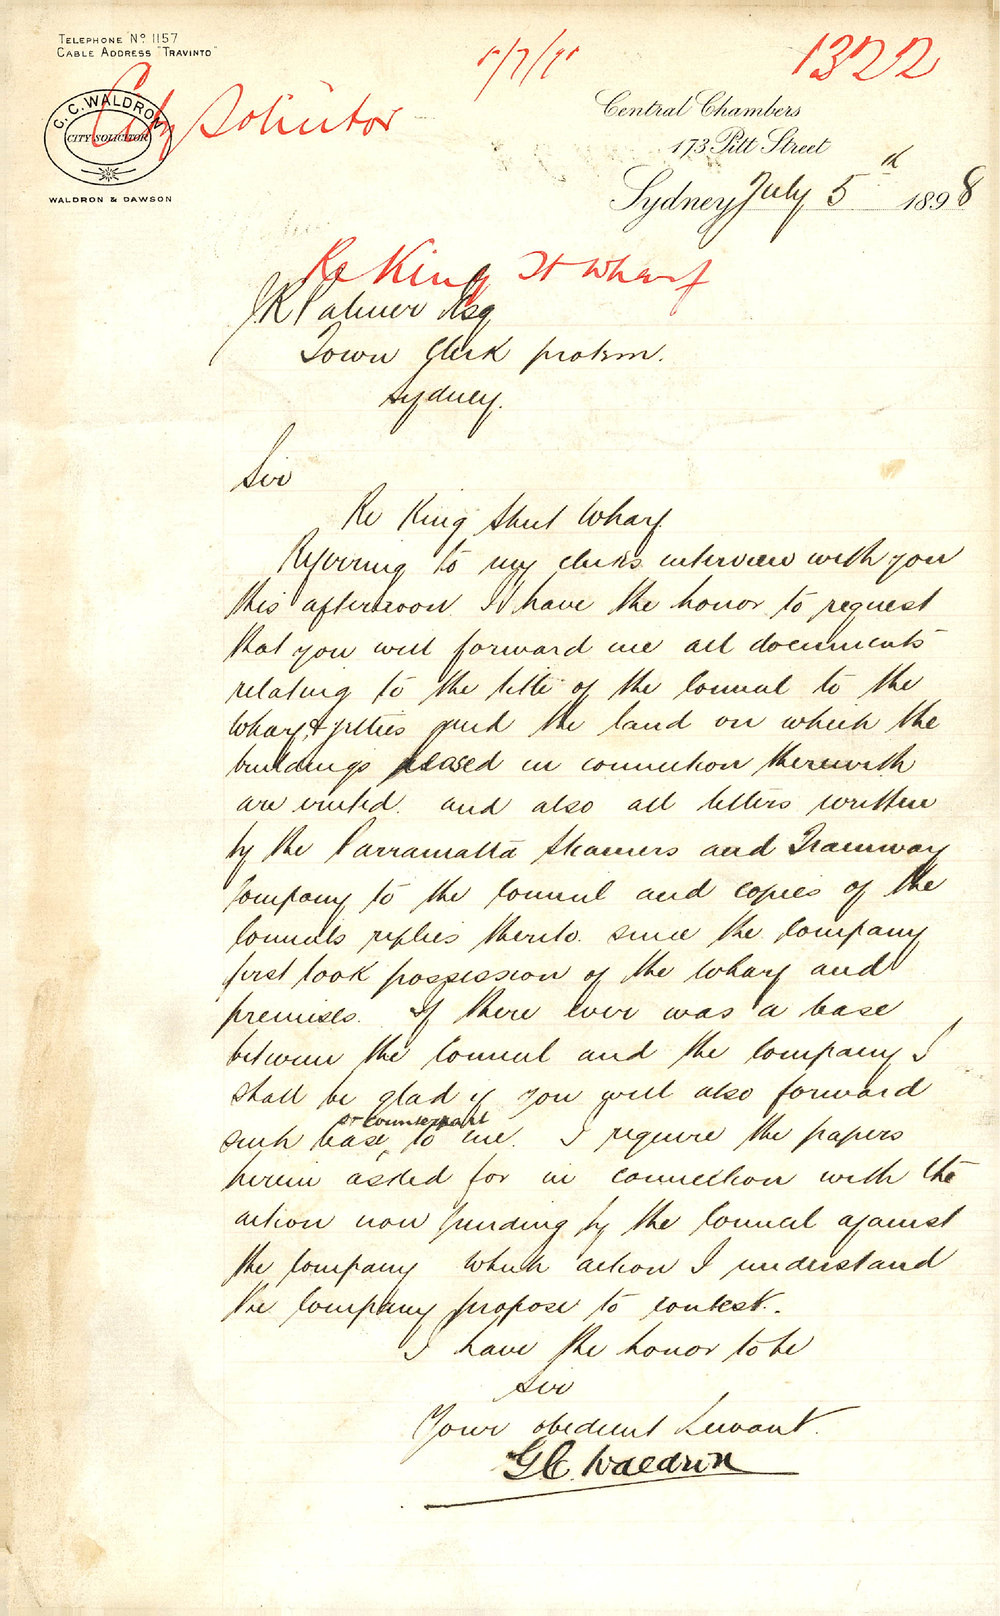 TELEPHONE No 1157
CABLE ADDRESS "TRAVINTO"
1322
City Solicitor
C. C. WALDRON
CITY SOLICITOR
WALDRON & DAWSON
Central Chambers
173 Pitt Street
Sydney July 5th 1898
Re King St Wharf
J R Palmer Esq
Town Clerk protem.
Sydney.
Sir
Re King Street Wharf
Referring to my clerks interview with you
this afternoon I have the honor to request
that you will forward me all documents
relating to the title of the Council to the
Wharf & jetties and the land on which the
buildings leased in connection therewith
are erected. and also all letters written
by the Parramatta Steamers and Tramway
Company to the Council and copies of the
Councils replies thereto. since the Company
first took possession of the Wharf and
premises. If there ever was a lease
between the Council and the Company I
shall be glad if you will also forward
such lease or counterpart to me. I require the papers
herein asked for in connection with the
action now pending by the Council against
the Company which action I understand
the Company propose to contest.
I have the honor to be
Sir
Your obedient Servant.
G C. Waldron